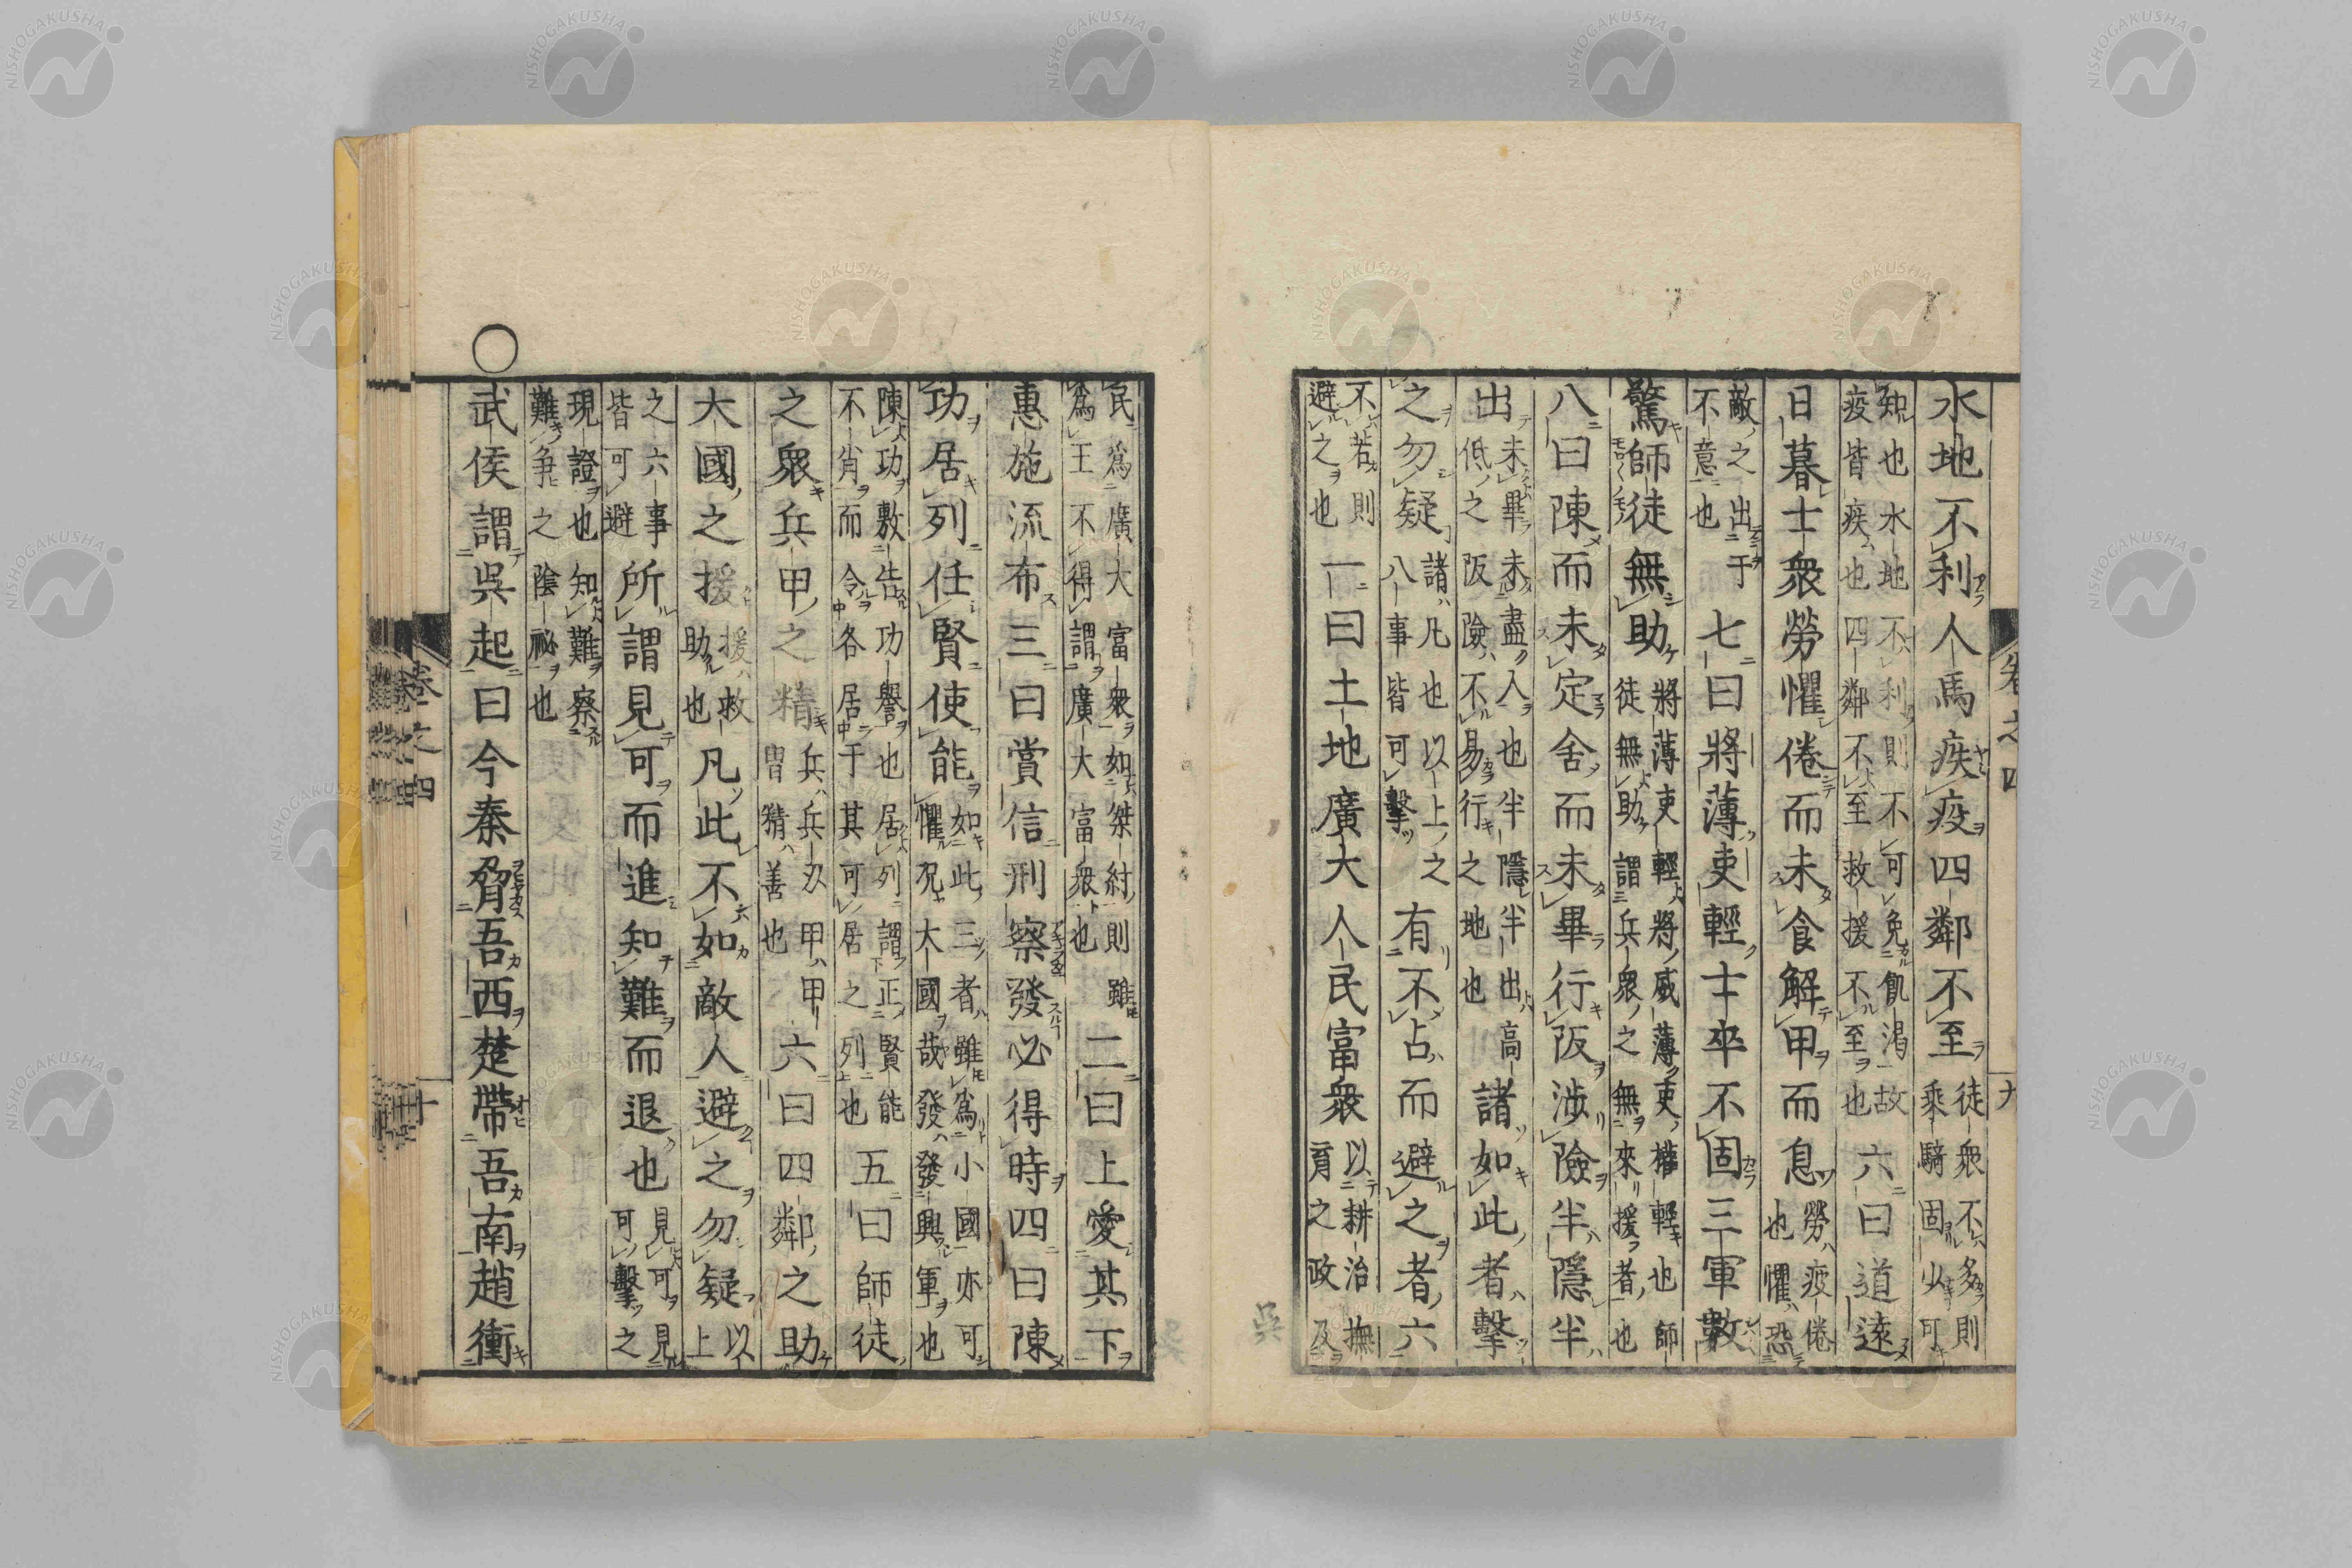 卷之四 九
水地不利人馬疾疫四鄰不至
徒衆不多則
乘騎固少可
知也水地不利則不可免飢渴故
疫皆疾也四鄰不至救援不至也
六曰道遠
日暮士衆勞懼倦而未食解甲而息
勞疲倦
也懼恐
敵之出于
不意也
七曰將薄吏輕士卒不固三軍數
驚師徒無助
將薄吏輕將威薄吏權輕也師
徒無助謂兵衆之無來援者也
八曰陳而未定舍而未畢行阪涉險半隱半
出
未畢未盡入也半隱半出高
低之阪險不易行之地也
諸如此者擊
之勿疑
諸凡也以上之
八事皆可擊
有不占而避之者六
不若則
避之也
一曰土地廣大人民富衆
以耕治撫
育之政及
民爲廣大富衆如桀紂則雖
爲王不得謂廣大富衆也
二曰上愛其下
惠施流布三曰賞信刑察發必得時四曰陳
功居列任賢使能
如此三者雖爲小國亦可
懼況大國哉發發興軍也
陳功敷告功譽也居列謂正賢能
不肖而令各居于其可居之列也
五曰師徒
之衆兵甲之精
兵兵刃甲甲
冑精善也
六曰四鄰之助
大國之援
援救
助也
凡此不如敵人避之勿疑
以上
之六事
皆可避
所謂見可而進知難而退也
見可見
可擊之
現證也知難察
難爭之陰祕也
○武侯謂吳起曰今秦脅吾西楚帶吾南趙衝
卷之四 十